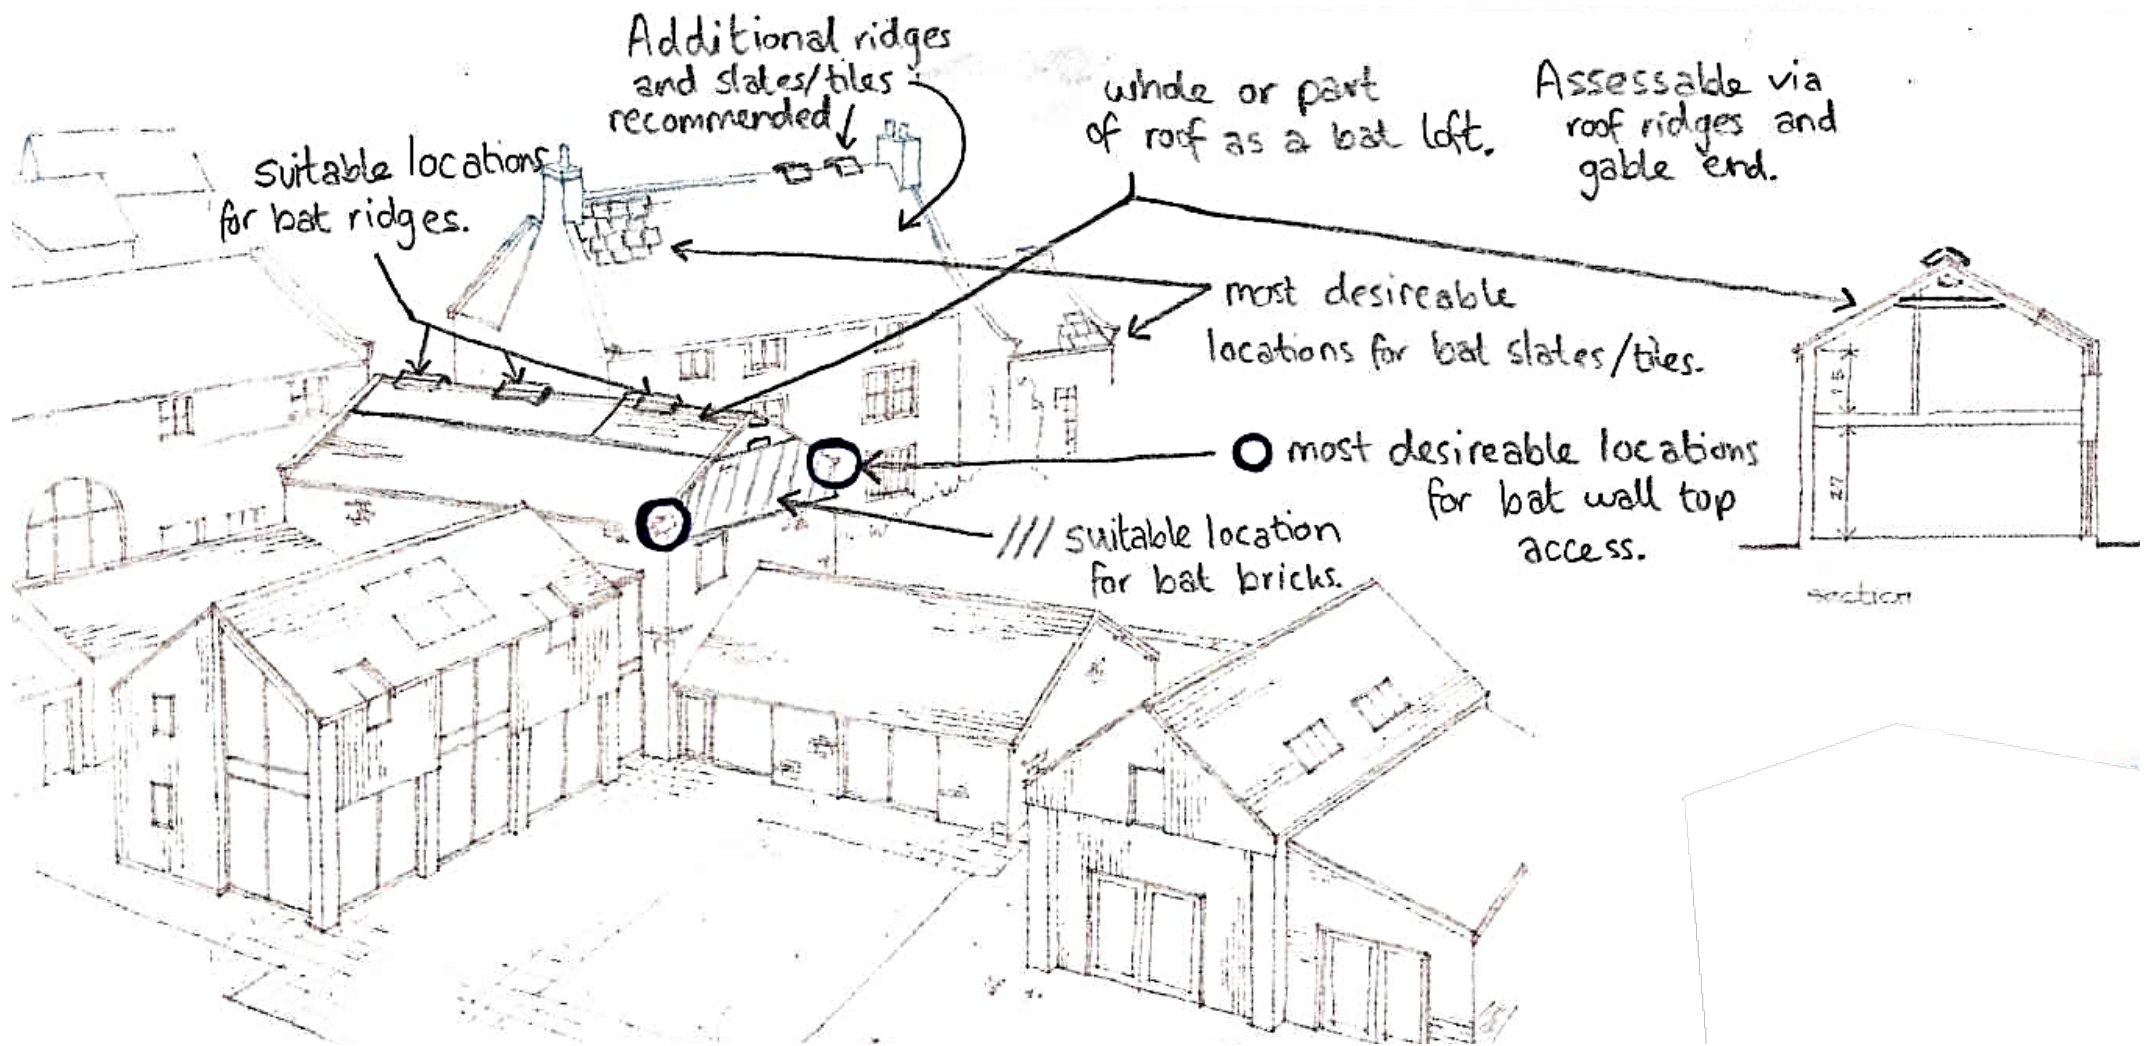 Additional ridges
and slates/tiles
recommended
suitable locations
for bat ridges.
whole or part
of roof as a bat loft.
Assessable via
roof ridges and
gable end.
most desireable
locations for bat slates/tiles.
most desireable locations
for bat wall top
access.
/// suitable location
for bat bricks.
section